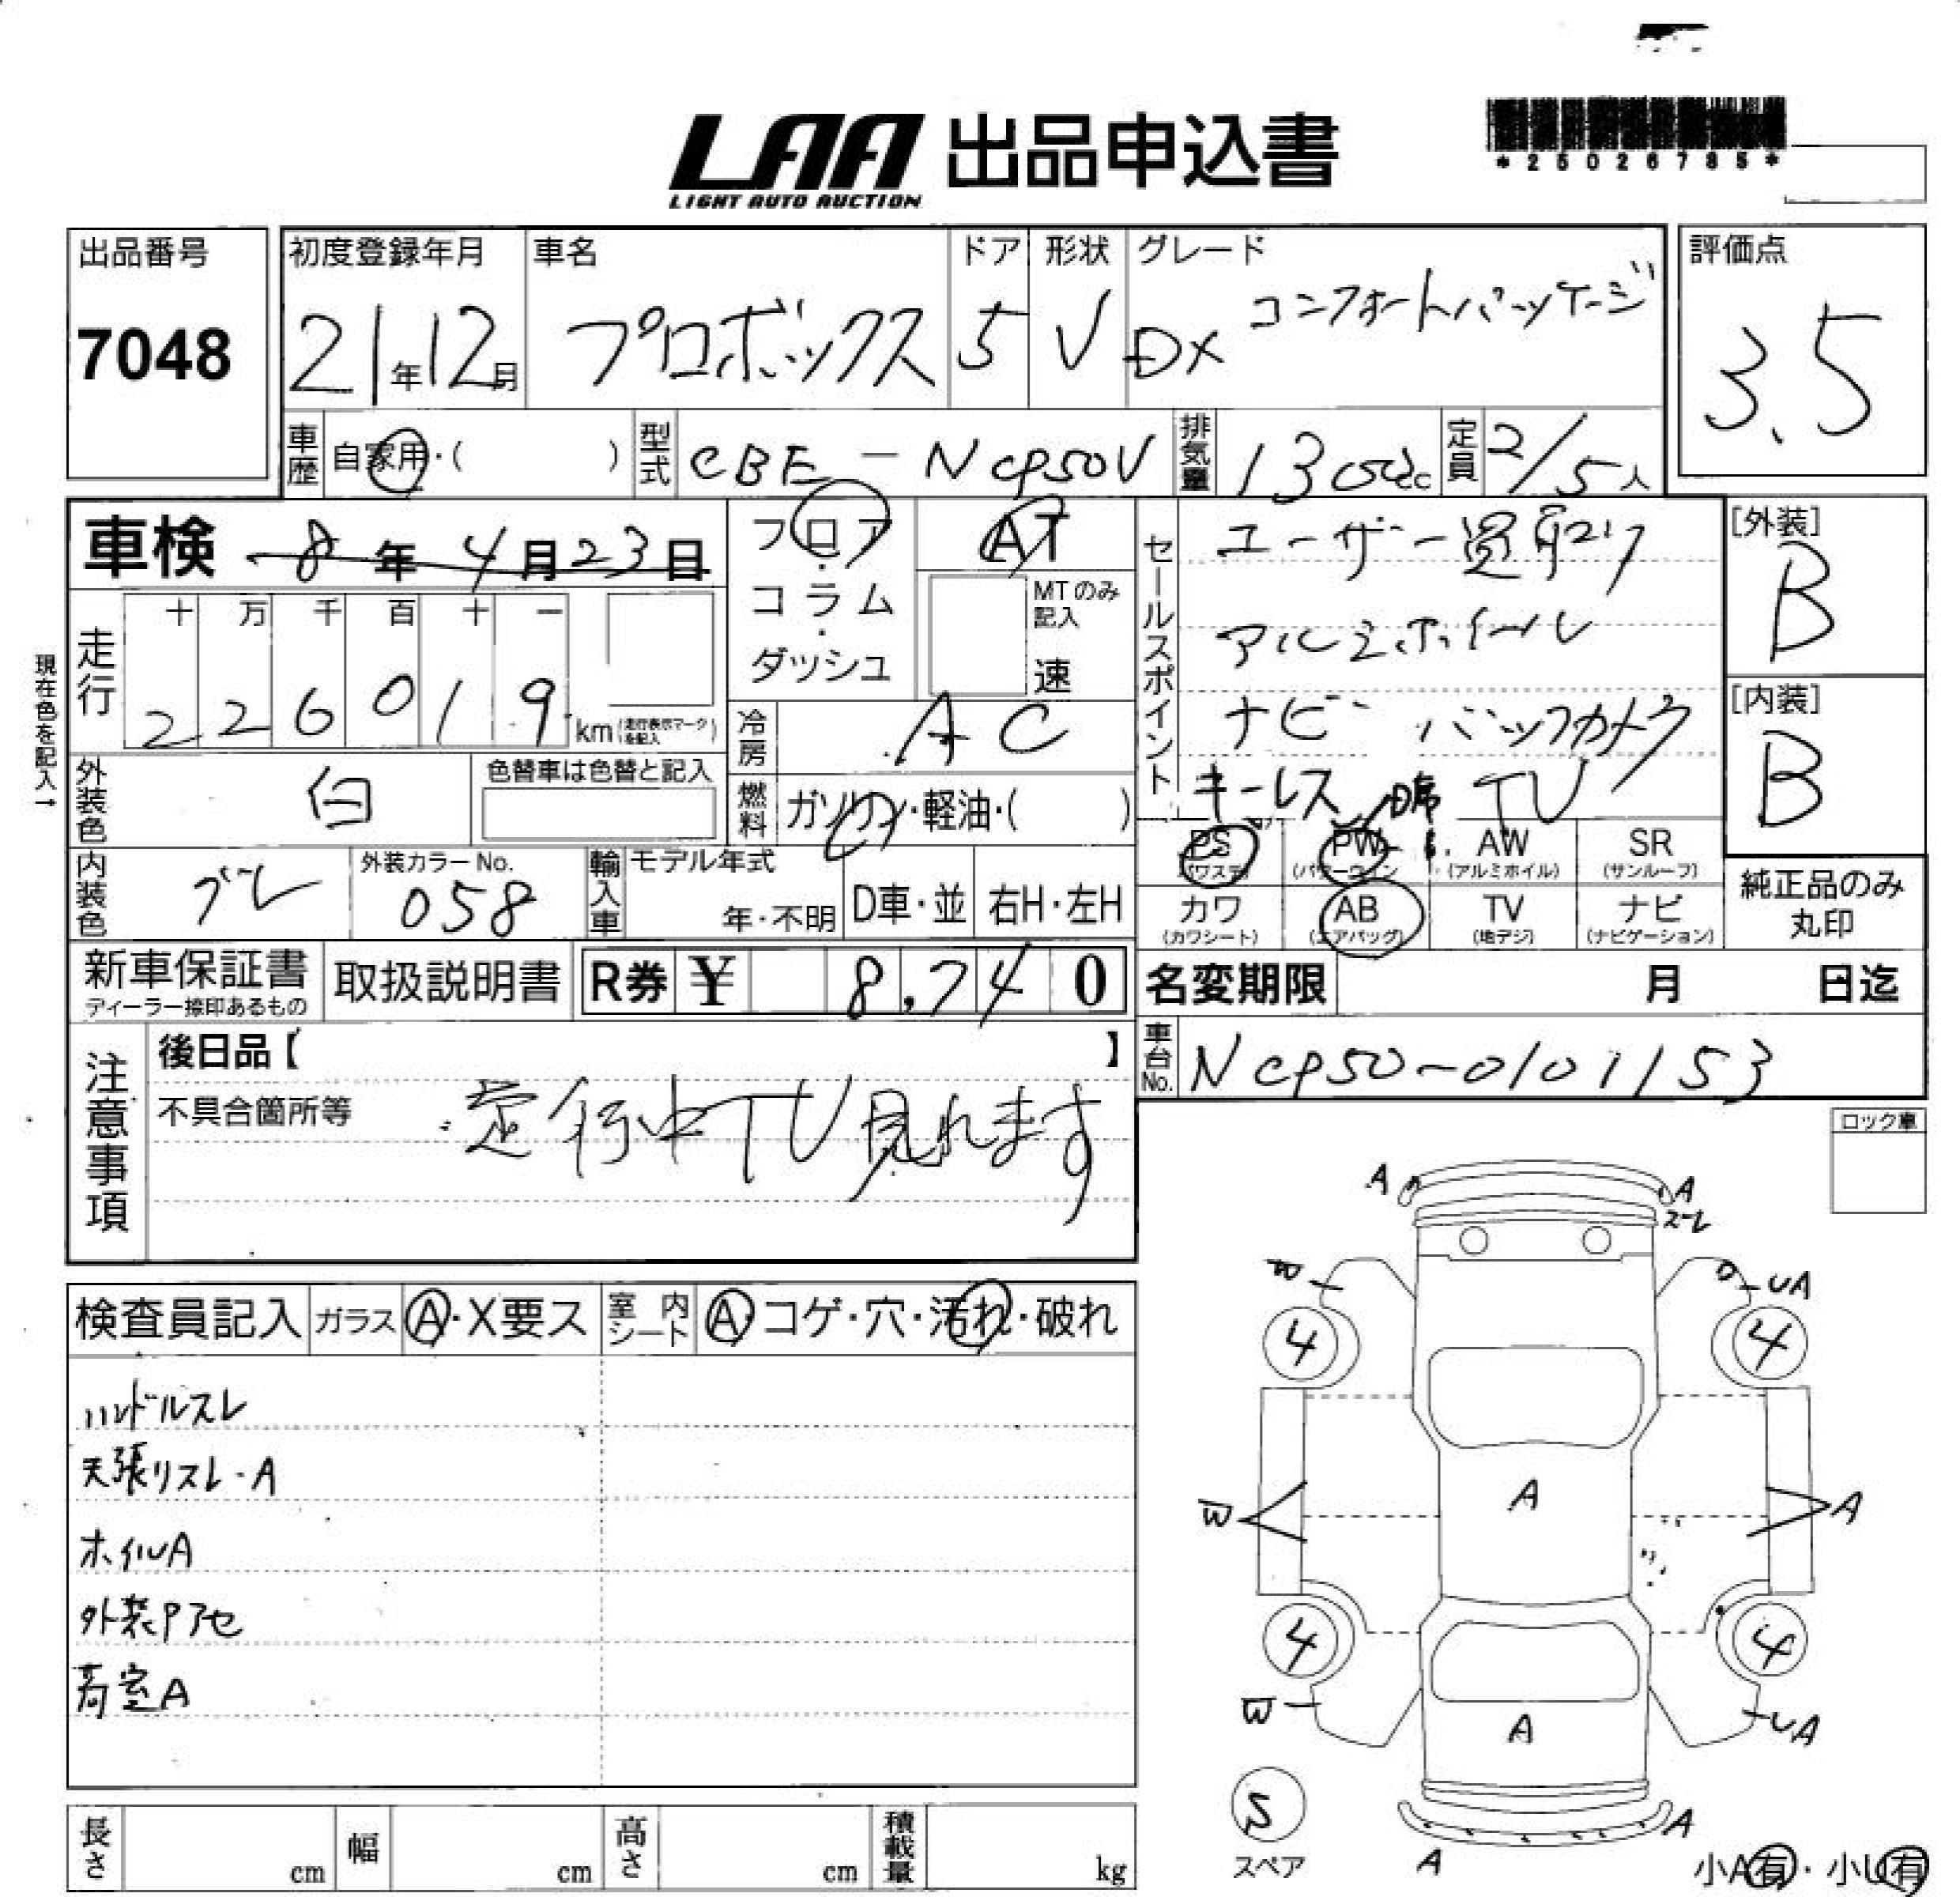 LAA 出品申込書
LIGHT AUTO AUCTION
*25026785*
出品番号 初度登録年月 車名 ドア 形状 グレード 評価点
7048 21年12月 プロボックス 5 V DX コンフォートパッケージ 3.5
車歴 自家用・( ) 型式 CBE-NCP50V 排気量 1300cc 定員 2/5人
車検 8年4月23日
フロア・コラム・ダッシュ
AT
MTのみ記入 速
セールスポイント
ユーザー買取り
アルミホイール
ナビ バックカメラ
キーレス TV
[外装] B
[内装] B
現在色を記入→
走行 十 万 千 百 十 一
226019 km (走行表示マークを記入)
冷房 AC
外装色 白 色替車は色替と記入
燃料 ガソリン・軽油・( )
PS (パワステ) PW (パワーウィン) AW (アルミホイル) SR (サンルーフ)
カワ (カワシート) AB (エアバッグ) TV (地デジ) ナビ (ナビゲーション)
純正品のみ丸印
内装色 グレー 外装カラーNo. 058 輸入車 モデル年式 年・不明 D車・並 右H・左H
新車保証書 ディーラー捺印あるもの 取扱説明書 R券 ¥ 8,740
名変期限 月 日迄
車台No. NCP50-0101153
注意事項
後日品【 】
不具合箇所等 走行中TV見れます
ロック車
検査員記入 ガラス A・X要ス 室内シート A・コゲ・穴・汚れ・破れ
ハンドルスレ
天張りスレ・A
ホイルA
外装Pアセ
荷室A
A A
スレ
W UA
4 4
A
W A
4 4
W UA
A
S
スペア
A
A
小A有・小U有
長さ cm 幅 cm 高さ cm 積載量 kg